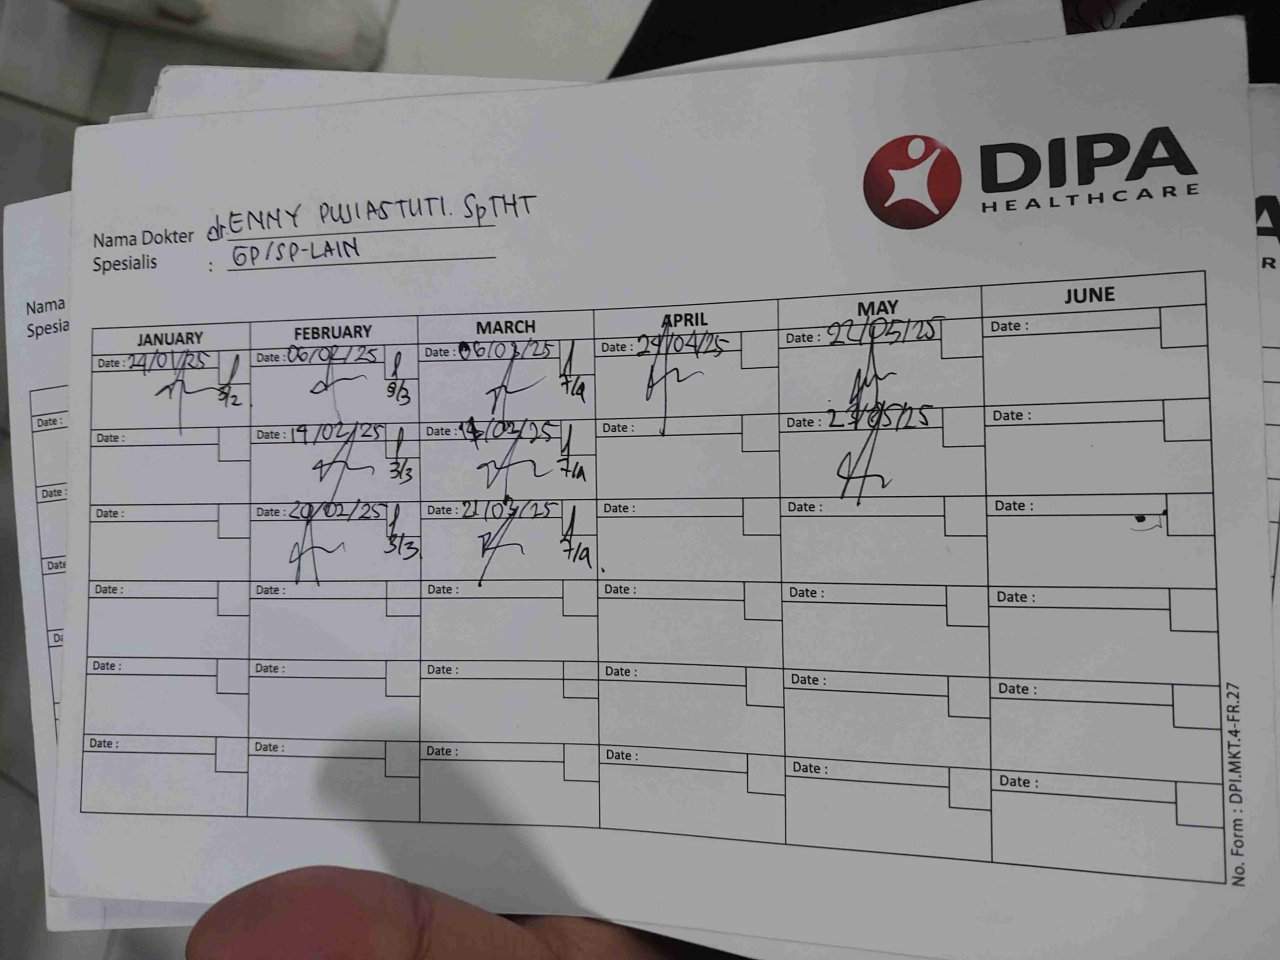 DIPA
HEALTHCARE
Nama Dokter dr. ENNY PUJIASTUTI. SpTHT
Spesialis : GP/SP-LAIN
Nama
Spesia
JANUARY FEBRUARY MARCH APRIL MAY JUNE
Date : 24/01/25 Date : 06/02/25 Date : 06/03/25 Date : 24/04/25 Date : 22/05/25 Date :
3/2 3/3 7/4
Date : Date : 14/02/25 Date : Date : Date : 27/05/25 Date :
3/3 7/4
Date : Date : 20/02/25 Date : 21/03/25 Date : Date : Date :
3/3 7/4
Date : Date : Date : Date : Date : Date :
Date : Date : Date : Date : Date : Date :
Date : Date : Date : Date : Date : Date :
No. Form : DPI.MKT.4-FR.27
Date :
Date :
Date